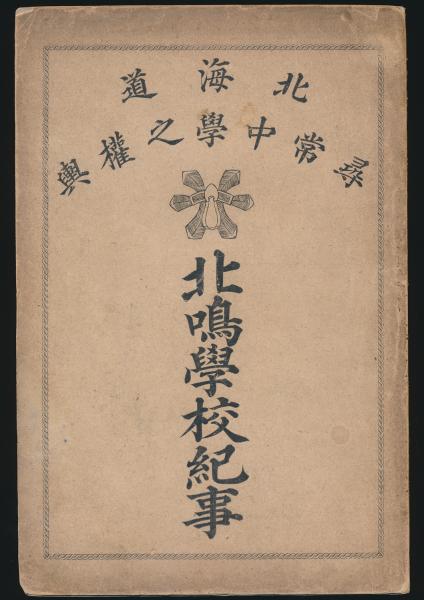 北海道
尋常中學之權輿
北鳴學校紀事